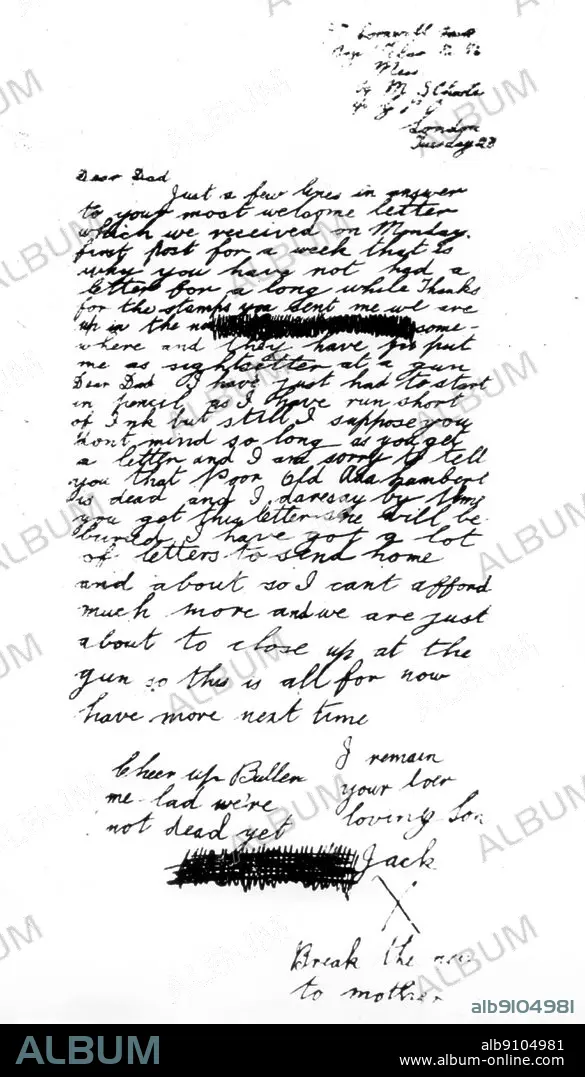 Cornwall
Mess
London
Tuesday 23
Dear Dad
Just a few lines in answer
to your most welcome letter
which we received on Monday.
first post for a week that is
why you have not had a
letter for a long while Thanks
for the stamps you sent me we are
up in the some-
where and they have put
me as sightsetter at a gun
Dear Dad I have just had to start
in pencil as I have run short
of Ink but still I suppose you
dont mind so long as you get
a letter and I am sorry to tell
you that Poor Old Ada
is dead and I daresay by time
you get this letter she will be
buried I have got a lot
of letters to send home
and about so I cant afford
much more and we are just
about to close up at the
gun so this is all for now
have more next time
I remain
your
loving Son
Jack
X
Cheer up Buller
me lad we're
not dead yet
Break the
to mother
ALBUM
alb9104981
ALBUM
alb9104981
www.album-online.com